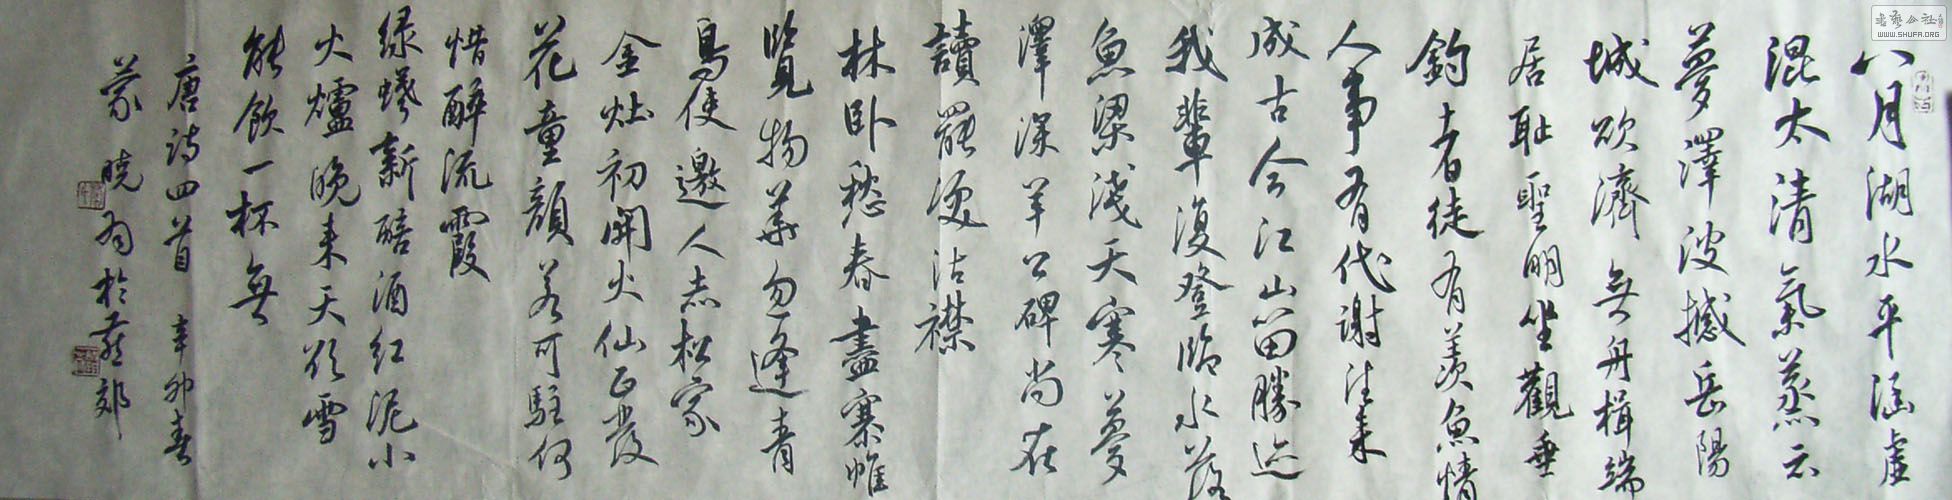 八月湖水平涵虚
混太清氣蒸云
夢澤波撼岳陽
城欲濟無舟楫端
居耻聖明坐觀垂
釣者徒有羨魚情
人事有代謝往来
成古今江山留勝迹
我輩復登臨水落
魚梁淺天寒夢
澤深羊公碑尚在
讀罷淚沾襟
林卧愁春盡搴帷
覽物華忽逢青
鳥使邀人赤松家
金灶初開火仙正發
花童顔若可駐何
惜醉流霞
绿蟻新醅酒红泥小
火爐晚来天欲雪
能飲一杯無
唐詩四首 辛卯春
曉 於 郊
书艺公社
WWW.SHUFA.ORG